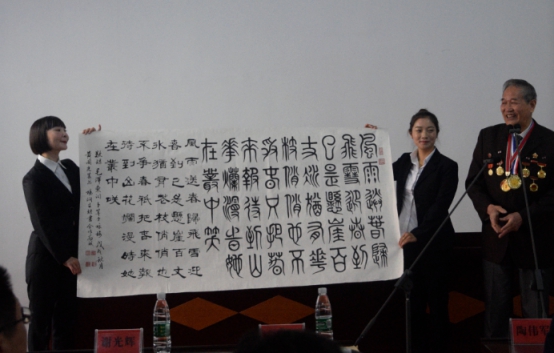 風雨送春歸
飛雪迎春到
已是懸崖百
丈冰猶有花
枝俏俏也不
爭春只把春
來報待到山
華爛漫時她
在叢中笑
風雨送春歸飛雪迎
春到已是懸崖百丈
冰猶有花枝俏俏也
不爭春祇把春來報
待到山花爛漫時她
在叢中咲
谢光辉
陶伟